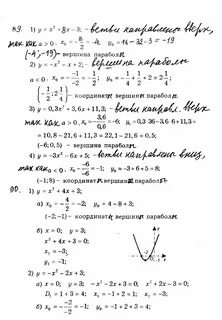 89. 1) y = x² - 8x - 3; - ветви направлены вверх,
так как a > 0. x₀ = 8/2 = 4, y₀ = 16 - 32 - 3 = -19
(4; -19) - вершина параболы.
2) y = -x² - x + 2; - вершина параболы
a < 0. x₀ = -1/2 = -1/2; y₀ = -1/4 + 1/2 + 2 = 2 1/4;
(-1/2; 2 1/4) - координаты вершины параболы.
3) y = 0,3x² + 3,6x + 11,3; - ветви направл. вверх
так как a > 0. x₀ = -3,6/0,6 = -6; y₀ = 0,3·36 - 3,6·6 + 11,3 =
= 10,8 - 21,6 + 11,3 = 22,1 - 21,6 = 0,5;
(-6; 0,5) - вершина параболы.
4) y = -3x² - 6x + 5; - ветви направлены вниз,
так как a < 0. x₀ = -6/6 = -1; y₀ = -3 + 6 + 5 = 8;
(-1; 8) - координаты вершины параболы.
90. 1) y = x² + 4x + 3;
а) x₀ = -4/2 = -2; y₀ = 4 - 8 + 3;
(-2; -1) - координаты вершины параболы.
б) x = 0; y = 3;
x² + 4x + 3 = 0;
x₁ = -3;
x₂ = -1;
2) y = -x² - 2x + 3;
а) x = 0; y = 3; -x² - 2x + 3 = 0; x² + 2x - 3 = 0;
D₁ = 1 + 3 = 4; x₁ = -1 + 2 = 1; x₂ = -3;
б) x₀ = -2/2 = -1; y₀ = -1 + 2 + 3 = 4;